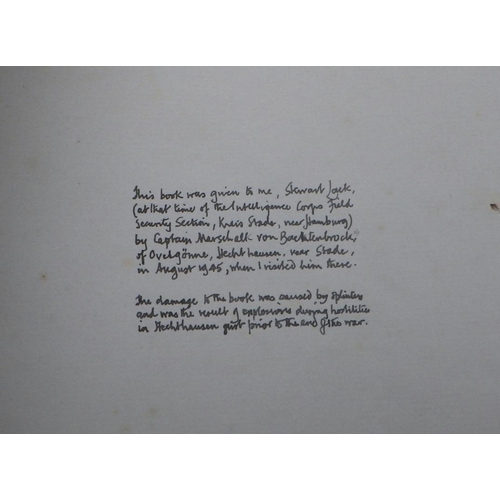 This book was given to me, Stewart Jack,
(at that time of the Intelligence Corps Field
Security Section, Kreis Stade, near Hamburg)
by Captain Marschall von Bachtenbrock,
of Ovelgönne, Hechthausen, near Stade,
in August 1945, when I visited him there.
The damage to the book was caused by splinters
and was the result of explosions during hostilities
in Hechthausen just prior to the end of the war.